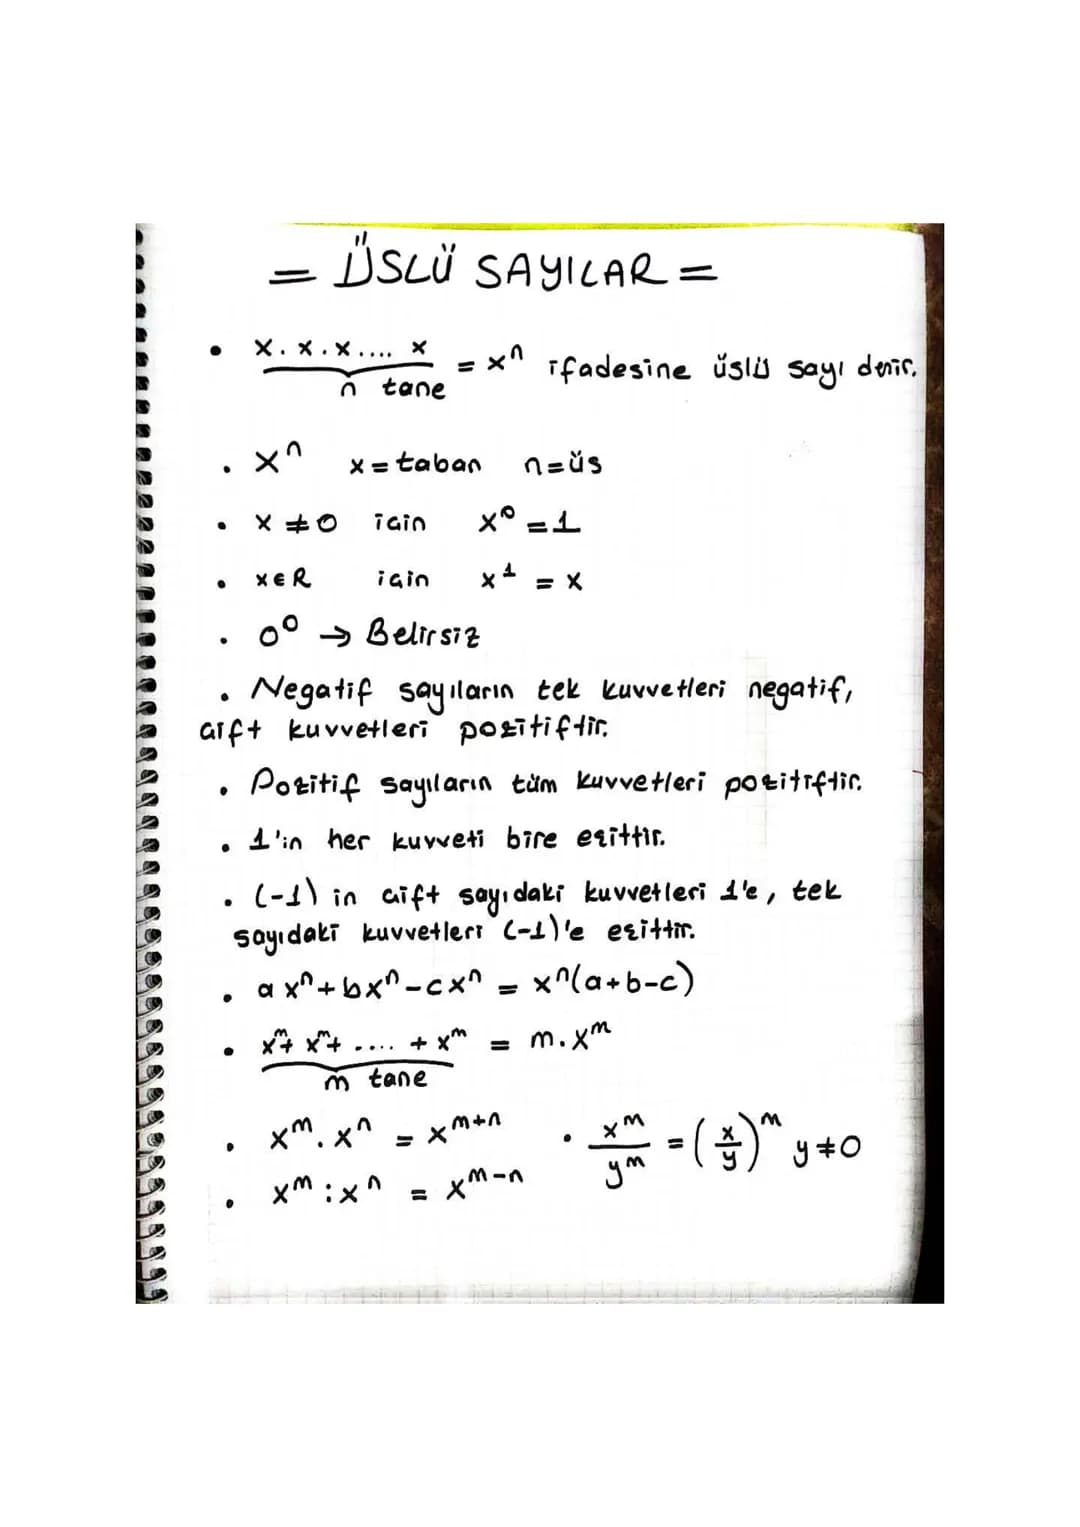 = ÜSLÜ SAYILAR =
• x.x.x.... x = xⁿ ifadesine üslü sayı denir.
n tane
• xⁿ x = taban n = üs
• x ≠ 0 için x⁰ = 1
• x ∈ R için x¹ = x
• 0⁰ → Belirsiz
• Negatif sayıların tek kuvvetleri negatif,
çift kuvvetleri pozitiftir.
• Pozitif sayıların tüm kuvvetleri pozitiftir.
• 1'in her kuvveti bire eşittir.
• (-1) in çift sayıdaki kuvvetleri 1'e, tek
sayıdaki kuvvetleri (-1)'e eşittir.
• axⁿ + bxⁿ - cxⁿ = xⁿ(a+b-c)
• xᵐ + xᵐ + .... + xᵐ = m.xᵐ
m tane
• xᵐ.xⁿ = xᵐ⁺ⁿ • xᵐ/yᵐ = (x/y)ᵐ y≠0
• xᵐ : xⁿ = xᵐ⁻ⁿ